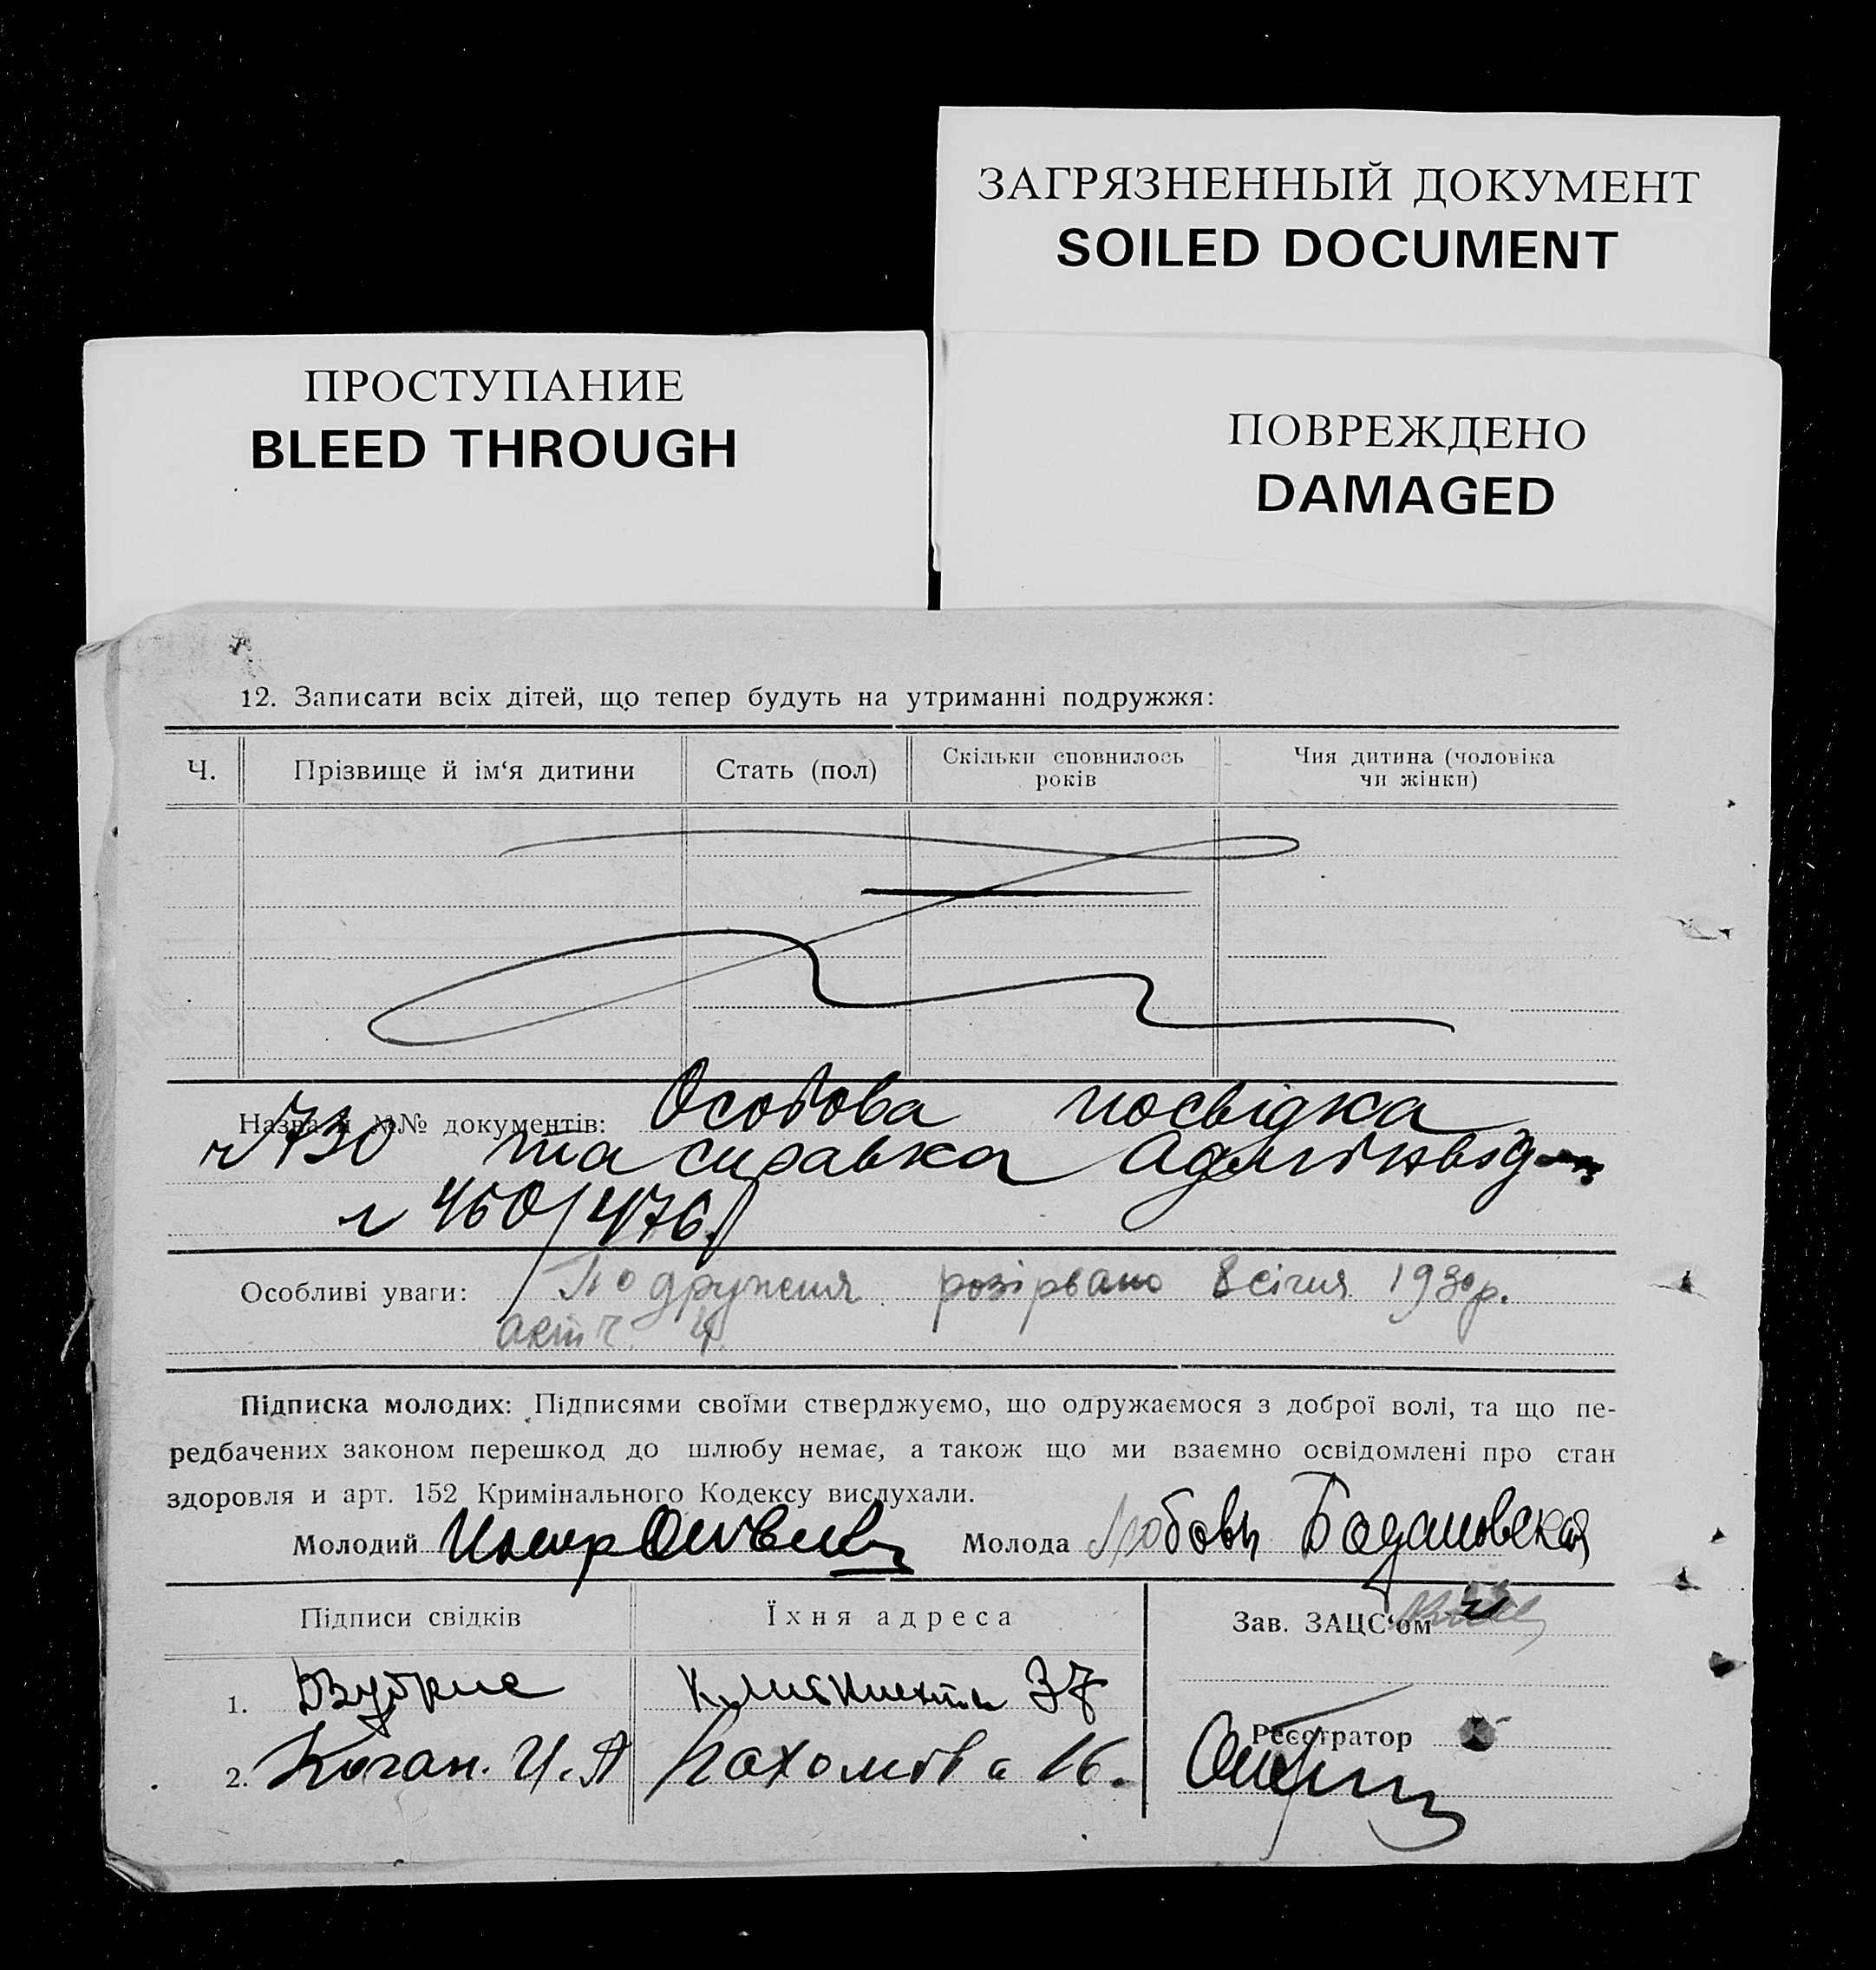 ЗАГРЯЗНЕННЫЙ ДОКУМЕНТ
SOILED DOCUMENT
ПРОСТУПАНИЕ
BLEED THROUGH
ПОВРЕЖДЕНО
DAMAGED
12. Записати всіх дітей, що тепер будуть на утриманні подружжя:
Ч.
Прізвище й ім‘я дитини
Стать (пол)
Скільки сповнилось
років
Чия дитина (чоловіка
чи жінки)
Назва й №№ документів: Особова посвідка
ч 730 та справка Адмінвід
ч 450/476
Особливі уваги: Подруження розірвано 8 січня 1930р.
акт ч. 4.
Підписка молодих: Підписями своїми стверджуємо, що одружаємося з доброї волі, та що пе-
редбачених законом перешкод до шлюбу немає, а також що ми взаємно освідомлені про стан
здоровля и арт. 152 Кримінального Кодексу вислухали.
Молодий
Молода Любовь
Підписи свідків
Їхня адреса
Зав. ЗАЦС‘ом
1.
37
Реєстратор
2. Коган. И. А
Пахомова 16.